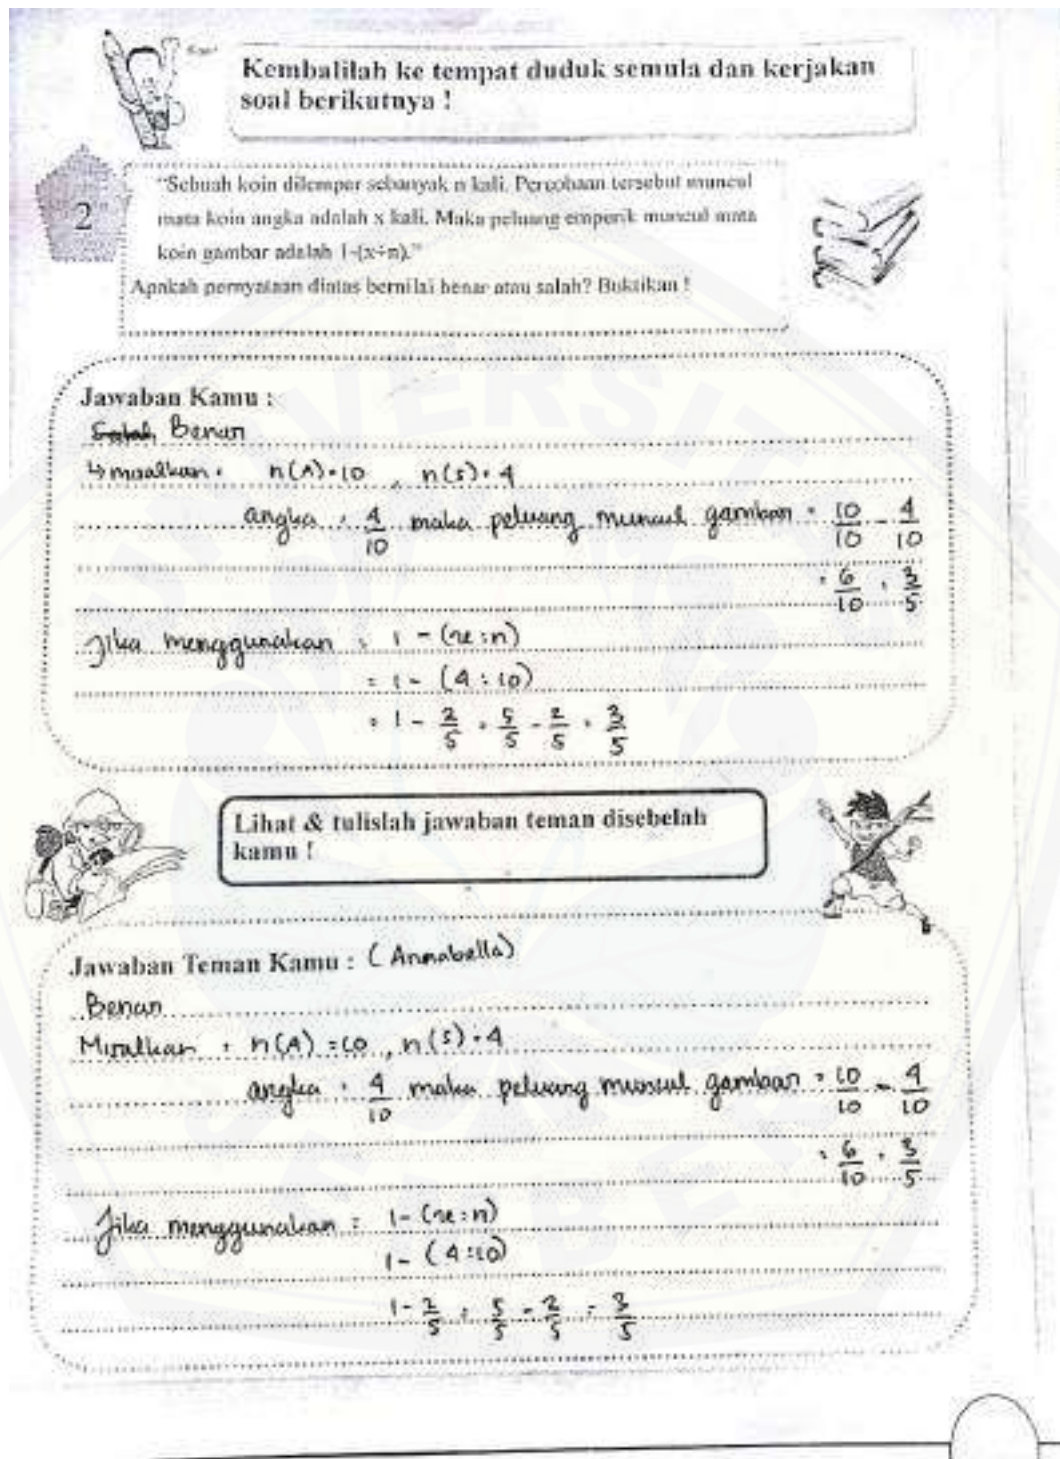 Kembalilah ke tempat duduk semula dan kerjakan
soal berikutnya !
2
"Sebuah koin dilempar sebanyak n kali. Percobaan tersebut muncul
mata koin angka adalah x kali. Maka peluang emperik muncul mata
koin gambar adalah 1-(x÷n)."
Apakah pernyataan diatas bernilai benar atau salah? Buktikan !
Jawaban Kamu :
Salah, Benar
↳ misalkan = n(A) = 10 , n(S) = 4
angka = 4/10 maka peluang muncul gambar = 10/10 - 4/10
= 6/10 = 3/5
Jika menggunakan = 1 - (x : n)
= 1 - (4 : 10)
= 1 - 2/5 = 5/5 - 2/5 = 3/5
Lihat & tulislah jawaban teman disebelah
kamu !
Jawaban Teman Kamu : (Annabella)
Benar
Misalkan = n(A) = 10 , n(S) = 4
angka = 4/10 maka peluang muncul gambar = 10/10 - 4/10
= 6/10 = 3/5
Jika menggunakan = 1 - (x : n)
1 - (4 : 10)
1 - 2/5 = 5/5 - 2/5 = 3/5